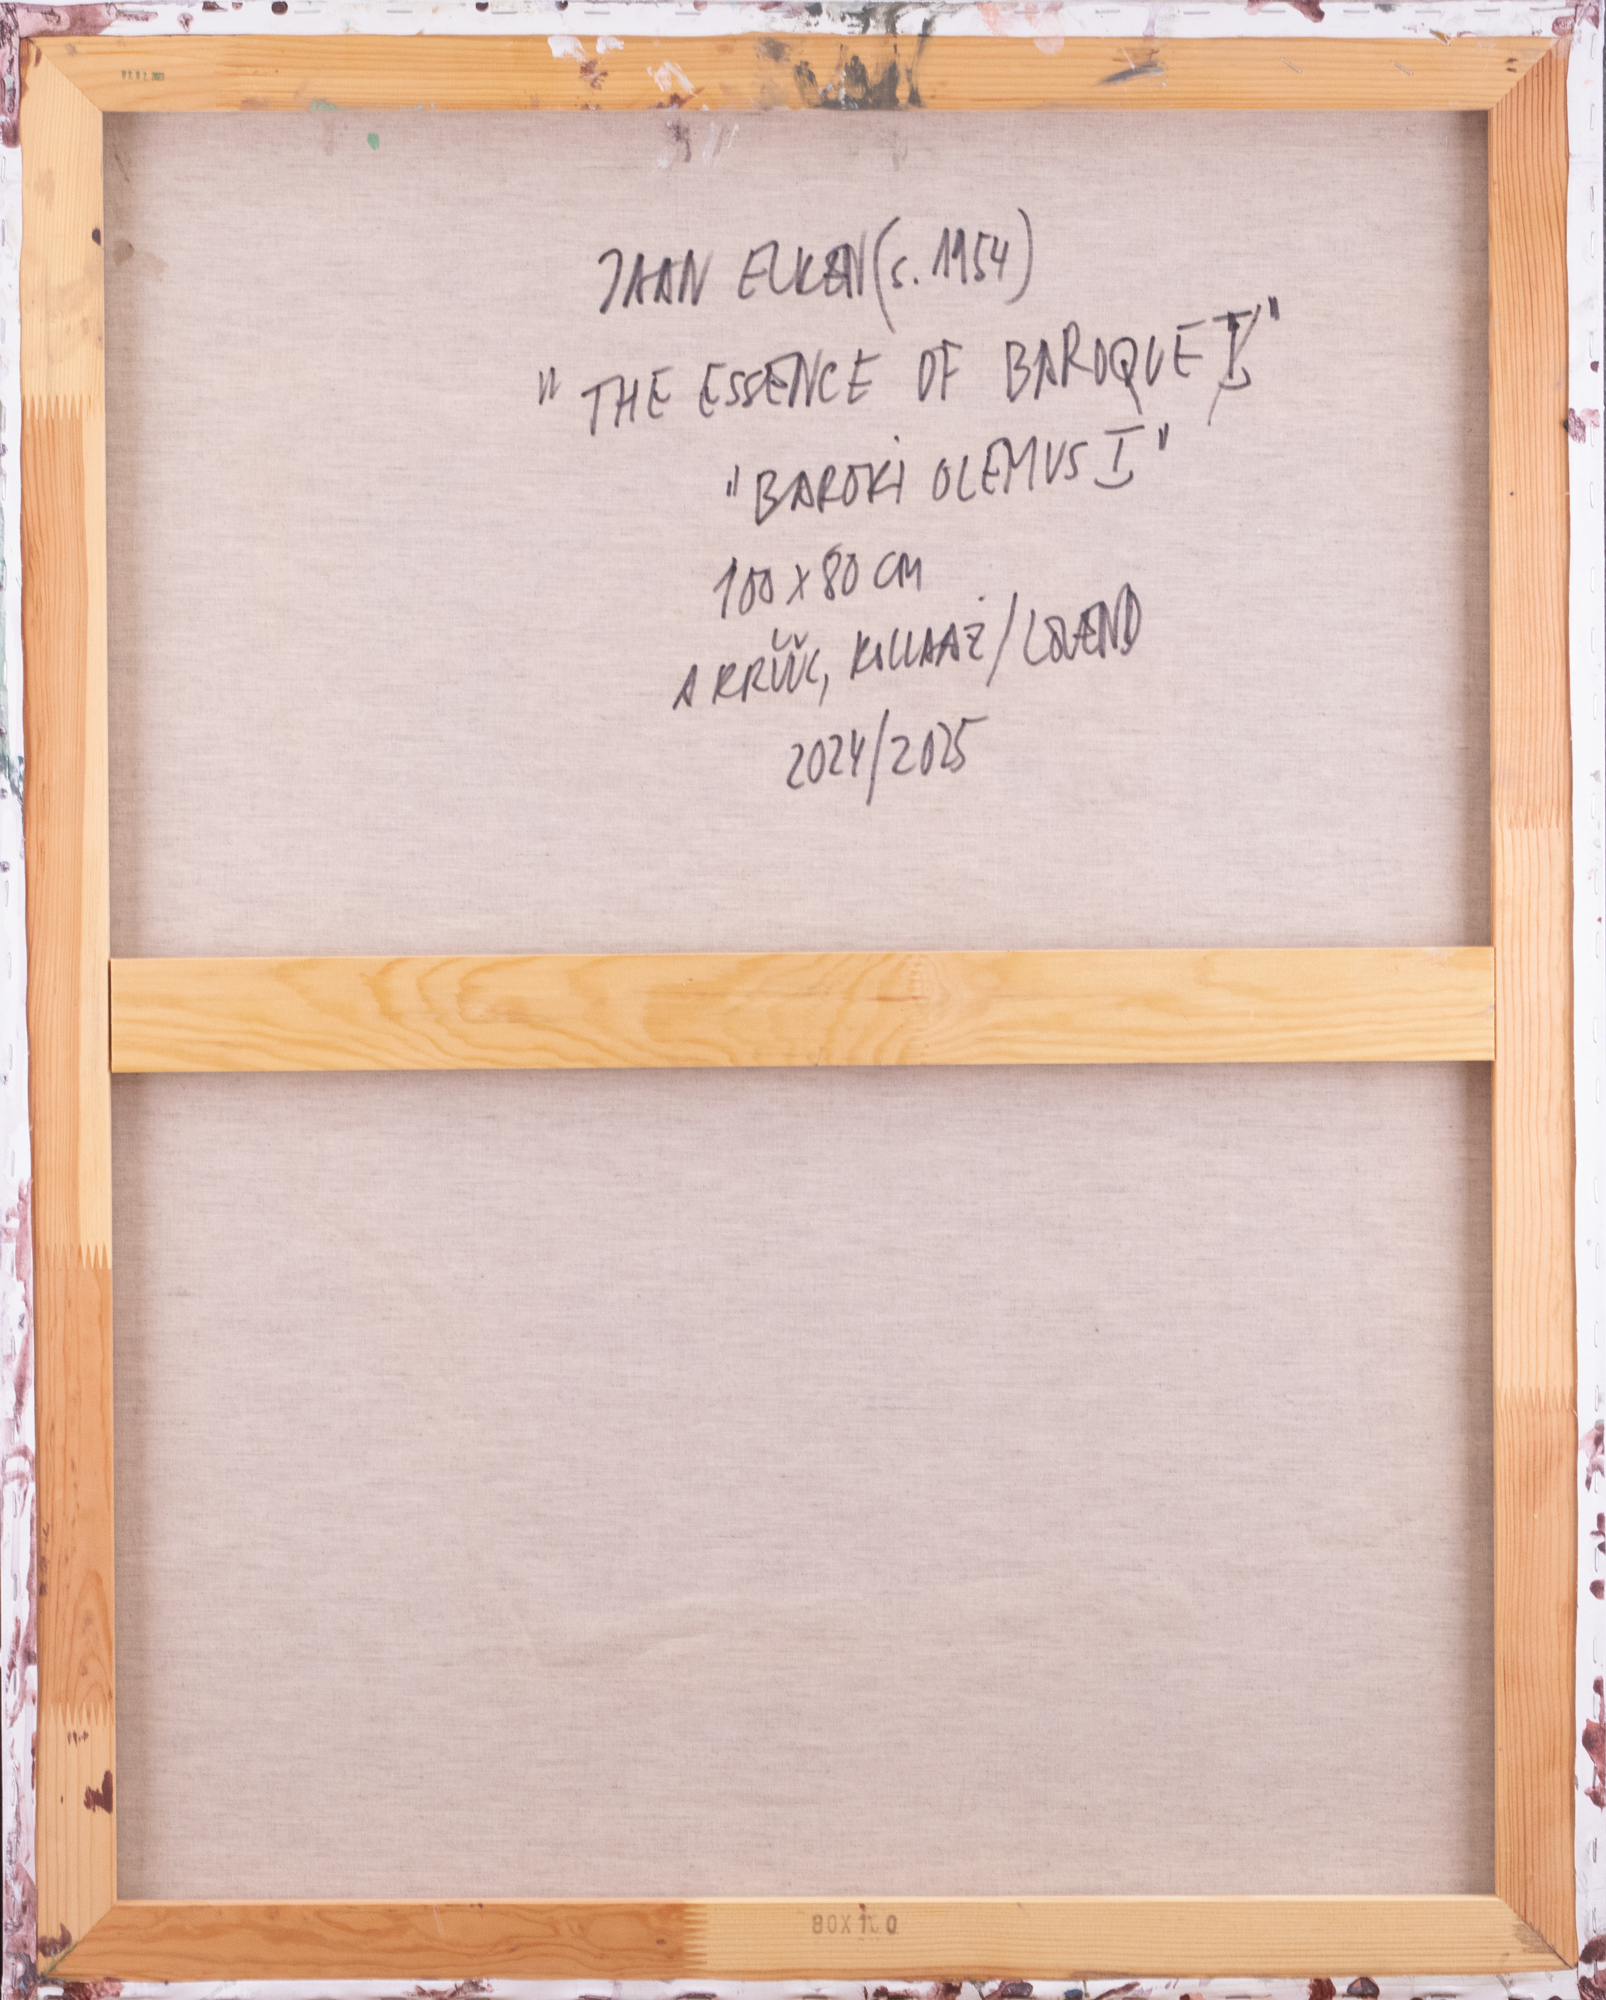 JAAN ELKEN (s. 1954)
"THE ESSENCE OF BAROQUE I"
"BAROKI OLEMUS I"
100 x 80 CM
AKRÜÜL, KOLLAAŽ/LÕUEND
2024/2025
80X100